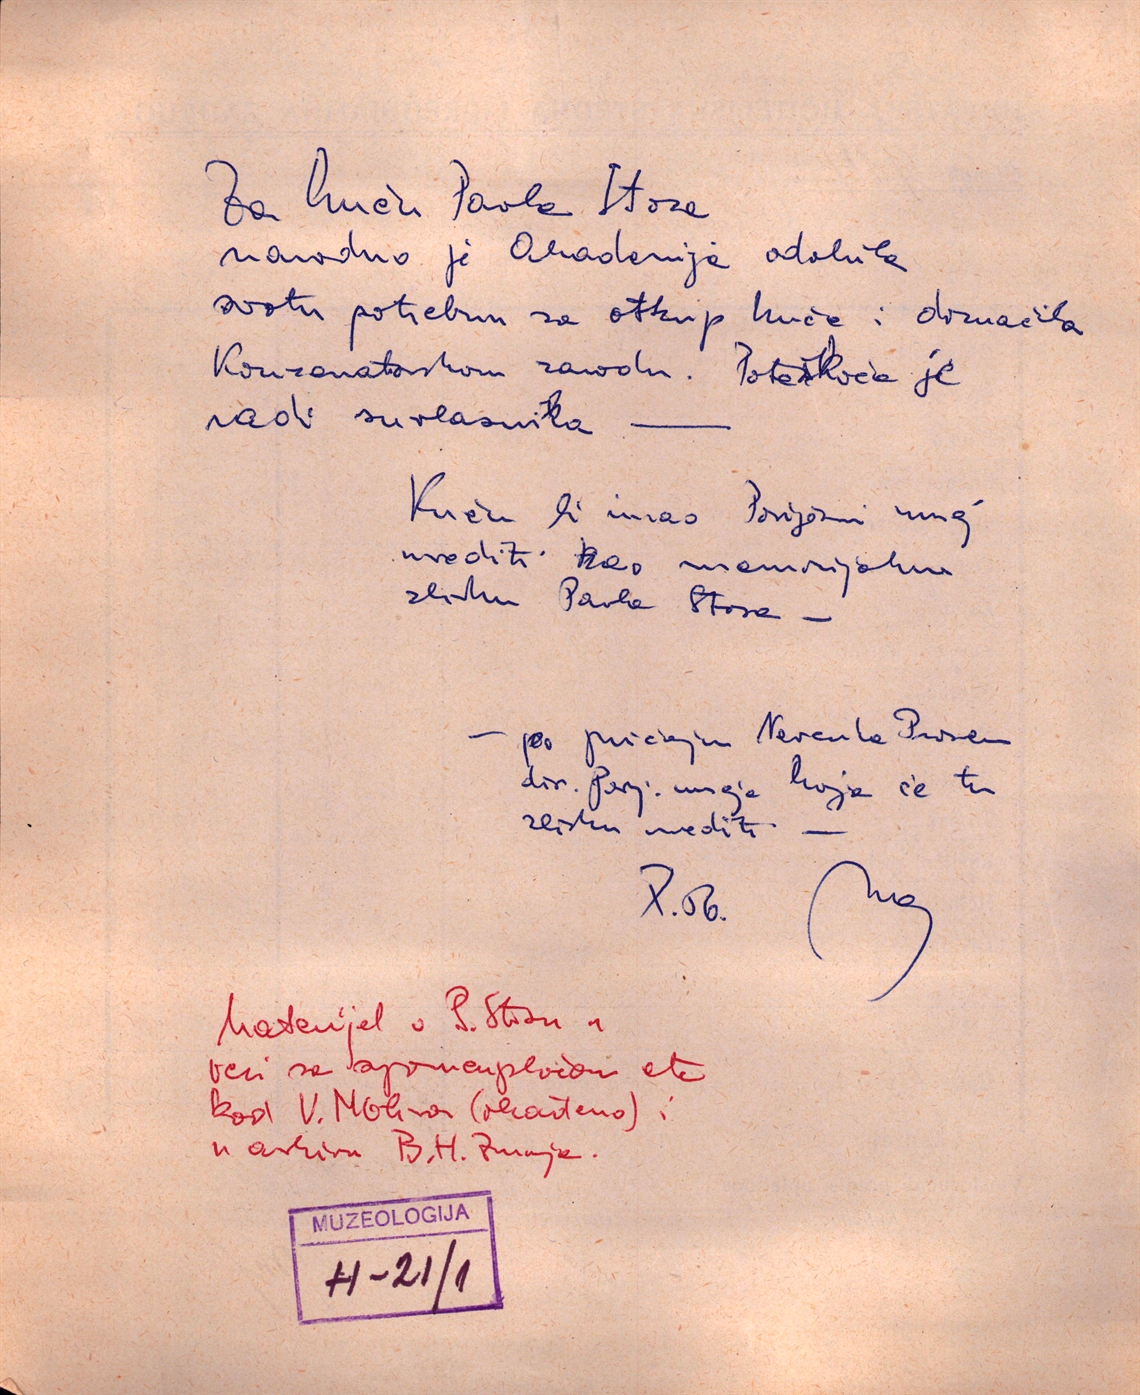 Za kuću Pavla Stosa
navodno je Akademija odobrila
svotu potrebnu za otkup kuće i doznačila
Konzervatorskom zavodu. Poteškoća je
radi suvlasnika —
Kuću bi imao Povijesni muzej
urediti kao memorijalnu
zbirku Pavla Stosa —
— po pričanju Nevenke Prosen
dir. Povj. muzeja koja će tu
zbirku urediti —
X.86.
Materijal o P. Stosu u
vezi sa spomenpločom etc
kod V. Malinar (okačeno) i
u arhivu B.H. Zmaja.
MUZEOLOGIJA
H-21/1